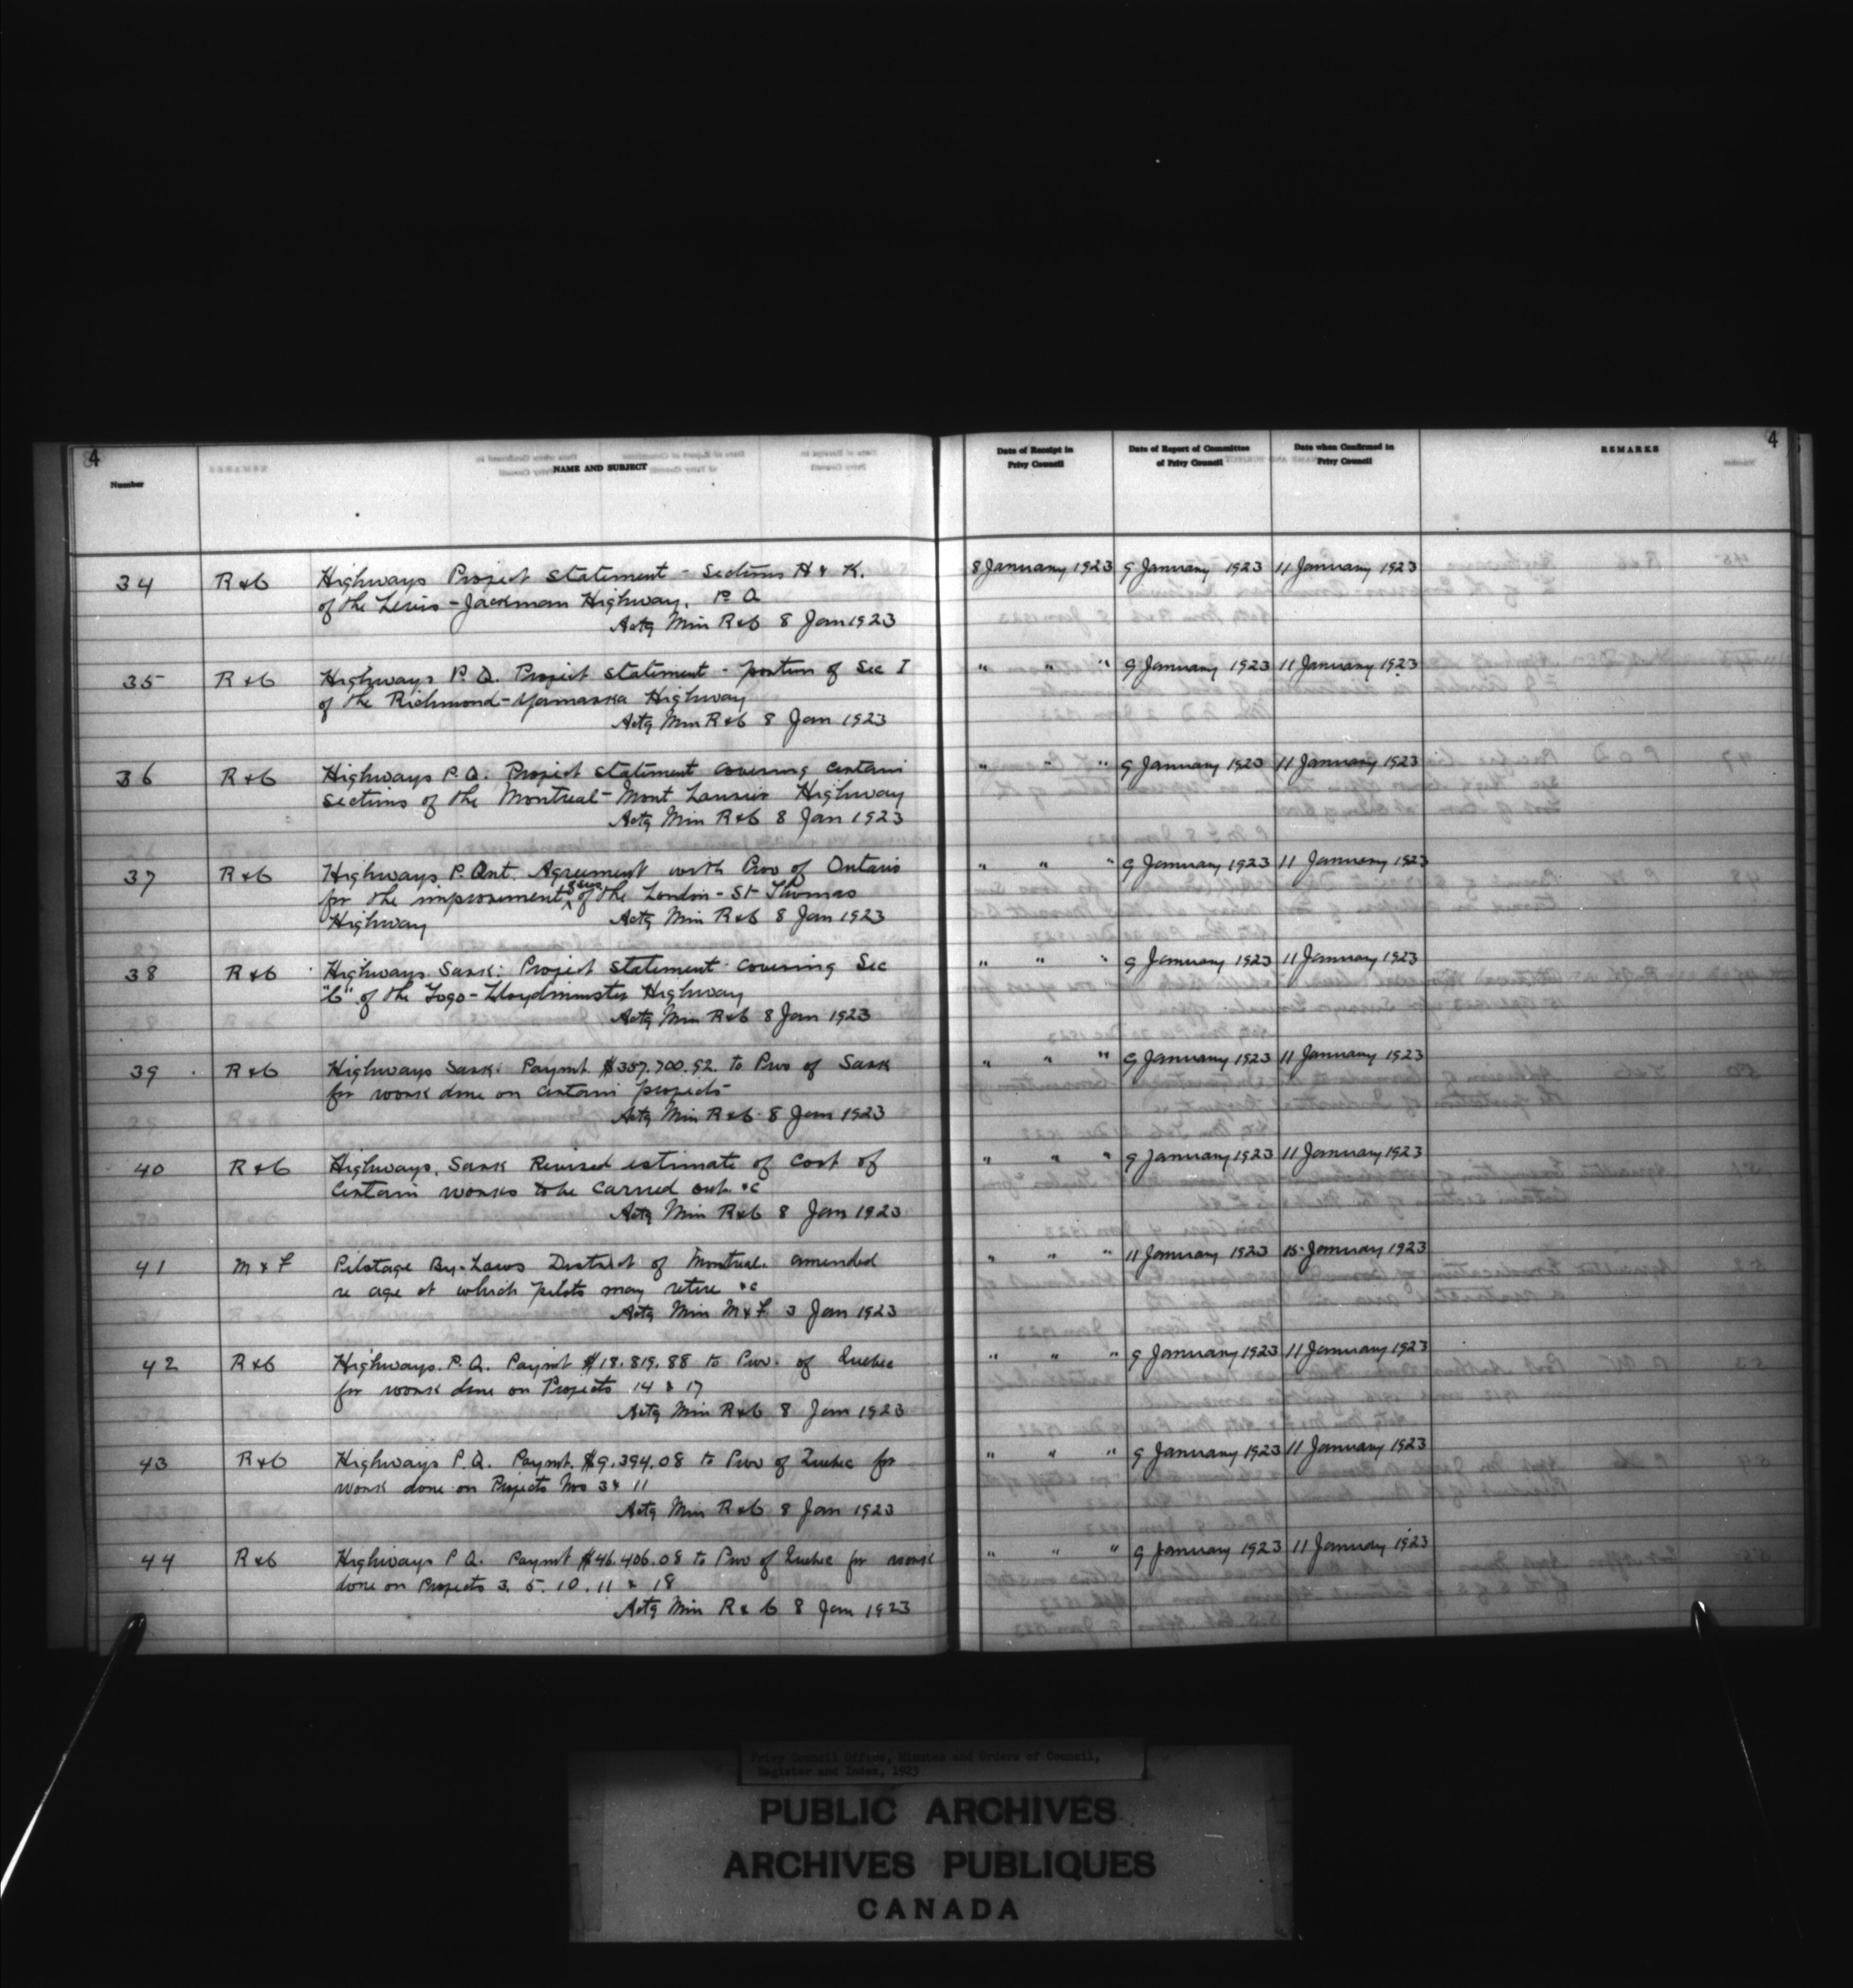 4
Number
NAME AND SUBJECT
Date of Receipt in
Privy Council
Date of Report of Committee
of Privy Council
Date when Confirmed in
Privy Council
REMARKS
4
34 R & C Highways Project Statement - Sections H & K. 8 January 1923 9 January 1923 11 January 1923
of the Levis - Jackman Highway. P Q
Actg Min R & C 8 Jan 1923
35 R & C Highways P. Q. Project Statement - portion of Sec I " " " 9 January 1923 11 January 1923
of the Richmond - Yamaska Highway
Actg Min R & C 8 Jan 1923
36 R & C Highways P. Q. Project Statement covering certain " " " 9 January 1923 11 January 1923
sections of the Montreal - Mont Laurier Highway
Actg Min R & C 8 Jan 1923
37 R & C Highways P. Ont. Agreement with Prov of Ontario " " " 9 January 1923 11 January 1923
for the improvement of the London - St Thomas
Highway Actg Min R & C 8 Jan 1923
38 R & C Highways Sask: Project Statement covering Sec " " " 9 January 1923 11 January 1923
"C" of the Togo - Lloydminster Highway
Actg Min R & C 8 Jan 1923
39 R & C Highways Sask: Paymt. $357.700.92. to Prov of Sask " " " 9 January 1923 11 January 1923
for work done on certain projects
Actg Min R & C 8 Jan 1923
40 R & C Highways, Sask Revised estimate of cost of " " " 9 January 1923 11 January 1923
certain works to be carried out. &c
Actg Min R & C 8 Jan 1923
41 M & F Pilotage By-Laws District of Montreal. amended " " " 11 January 1923 15 January 1923
re age at which pilots may retire &c
Actg Min M & F 3 Jan 1923
42 R & C Highways. P. Q. Paymt $18.819.88 to Prov. of Quebec " " " 9 January 1923 11 January 1923
for work done on Projects 14 & 17
Actg Min R & C 8 Jan 1923
43 R & C Highways P. Q. Paymt. $9.394.08 to Prov of Quebec for " " " 9 January 1923 11 January 1923
work done on Projects Nos 3 & 11
Actg Min R & C 8 Jan 1923
44 R & C Highways P Q. Paymt $46.406.08 to Prov of Quebec for work " " " 9 January 1923 11 January 1923
done on Projects 3. 5. 10. 11 & 18
Actg Min R & C 8 Jan 1923
Privy Council Office, Minutes and Orders of Council,
Register and Index, 1923
PUBLIC ARCHIVES
ARCHIVES PUBLIQUES
CANADA